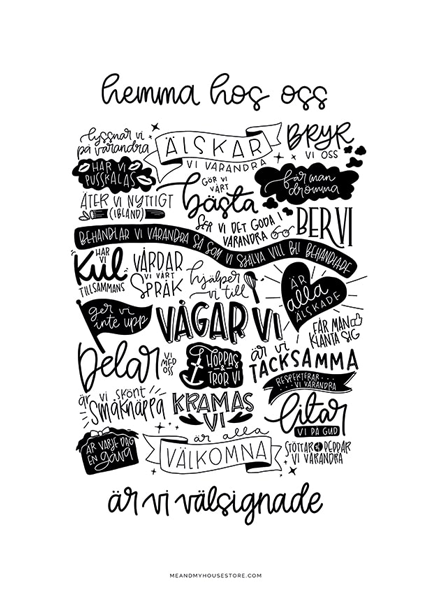 hemma hos oss
lyssnar vi
på varandra
ÄLSKAR
VI VARANDRA
BRYR
VI OSS
HAR VI
PUSSKALAS
GÖR VI
VÅRT
bästa
får man
drömma
ÄTER VI NYTTIGT
(IBLAND)
SER VI DET GODA I
VARANDRA
BER VI
BEHANDLAR VI VARANDRA SÅ SOM VI SJÄLVA VILL BLI BEHANDLADE
HAR
VI
Kul
TILLSAMMANS
VÅRDAR
VI VÅRT
SPRÅK
hjälper
vi till
ÄR
alla
ÄLSKADE
ger vi
inte upp
VÅGAR VI
FÅR MAN
KLANTA SIG
Delar
VI
MED
OSS
HOPPAS
&
TROR VI
är vi
TACKSAMMA
RESPEKTERAR
VI VARANDRA
är vi skönt
Småknäppa
KRAMAS
VI
litar
VI PÅ GUD
ÄR VARJE DAG
EN GÅVA
är alla
VÄLKOMNA
STÖTTAR & PEPPAR
VI VARANDRA
är vi välsignade
MEANDMYHOUSESTORE.COM